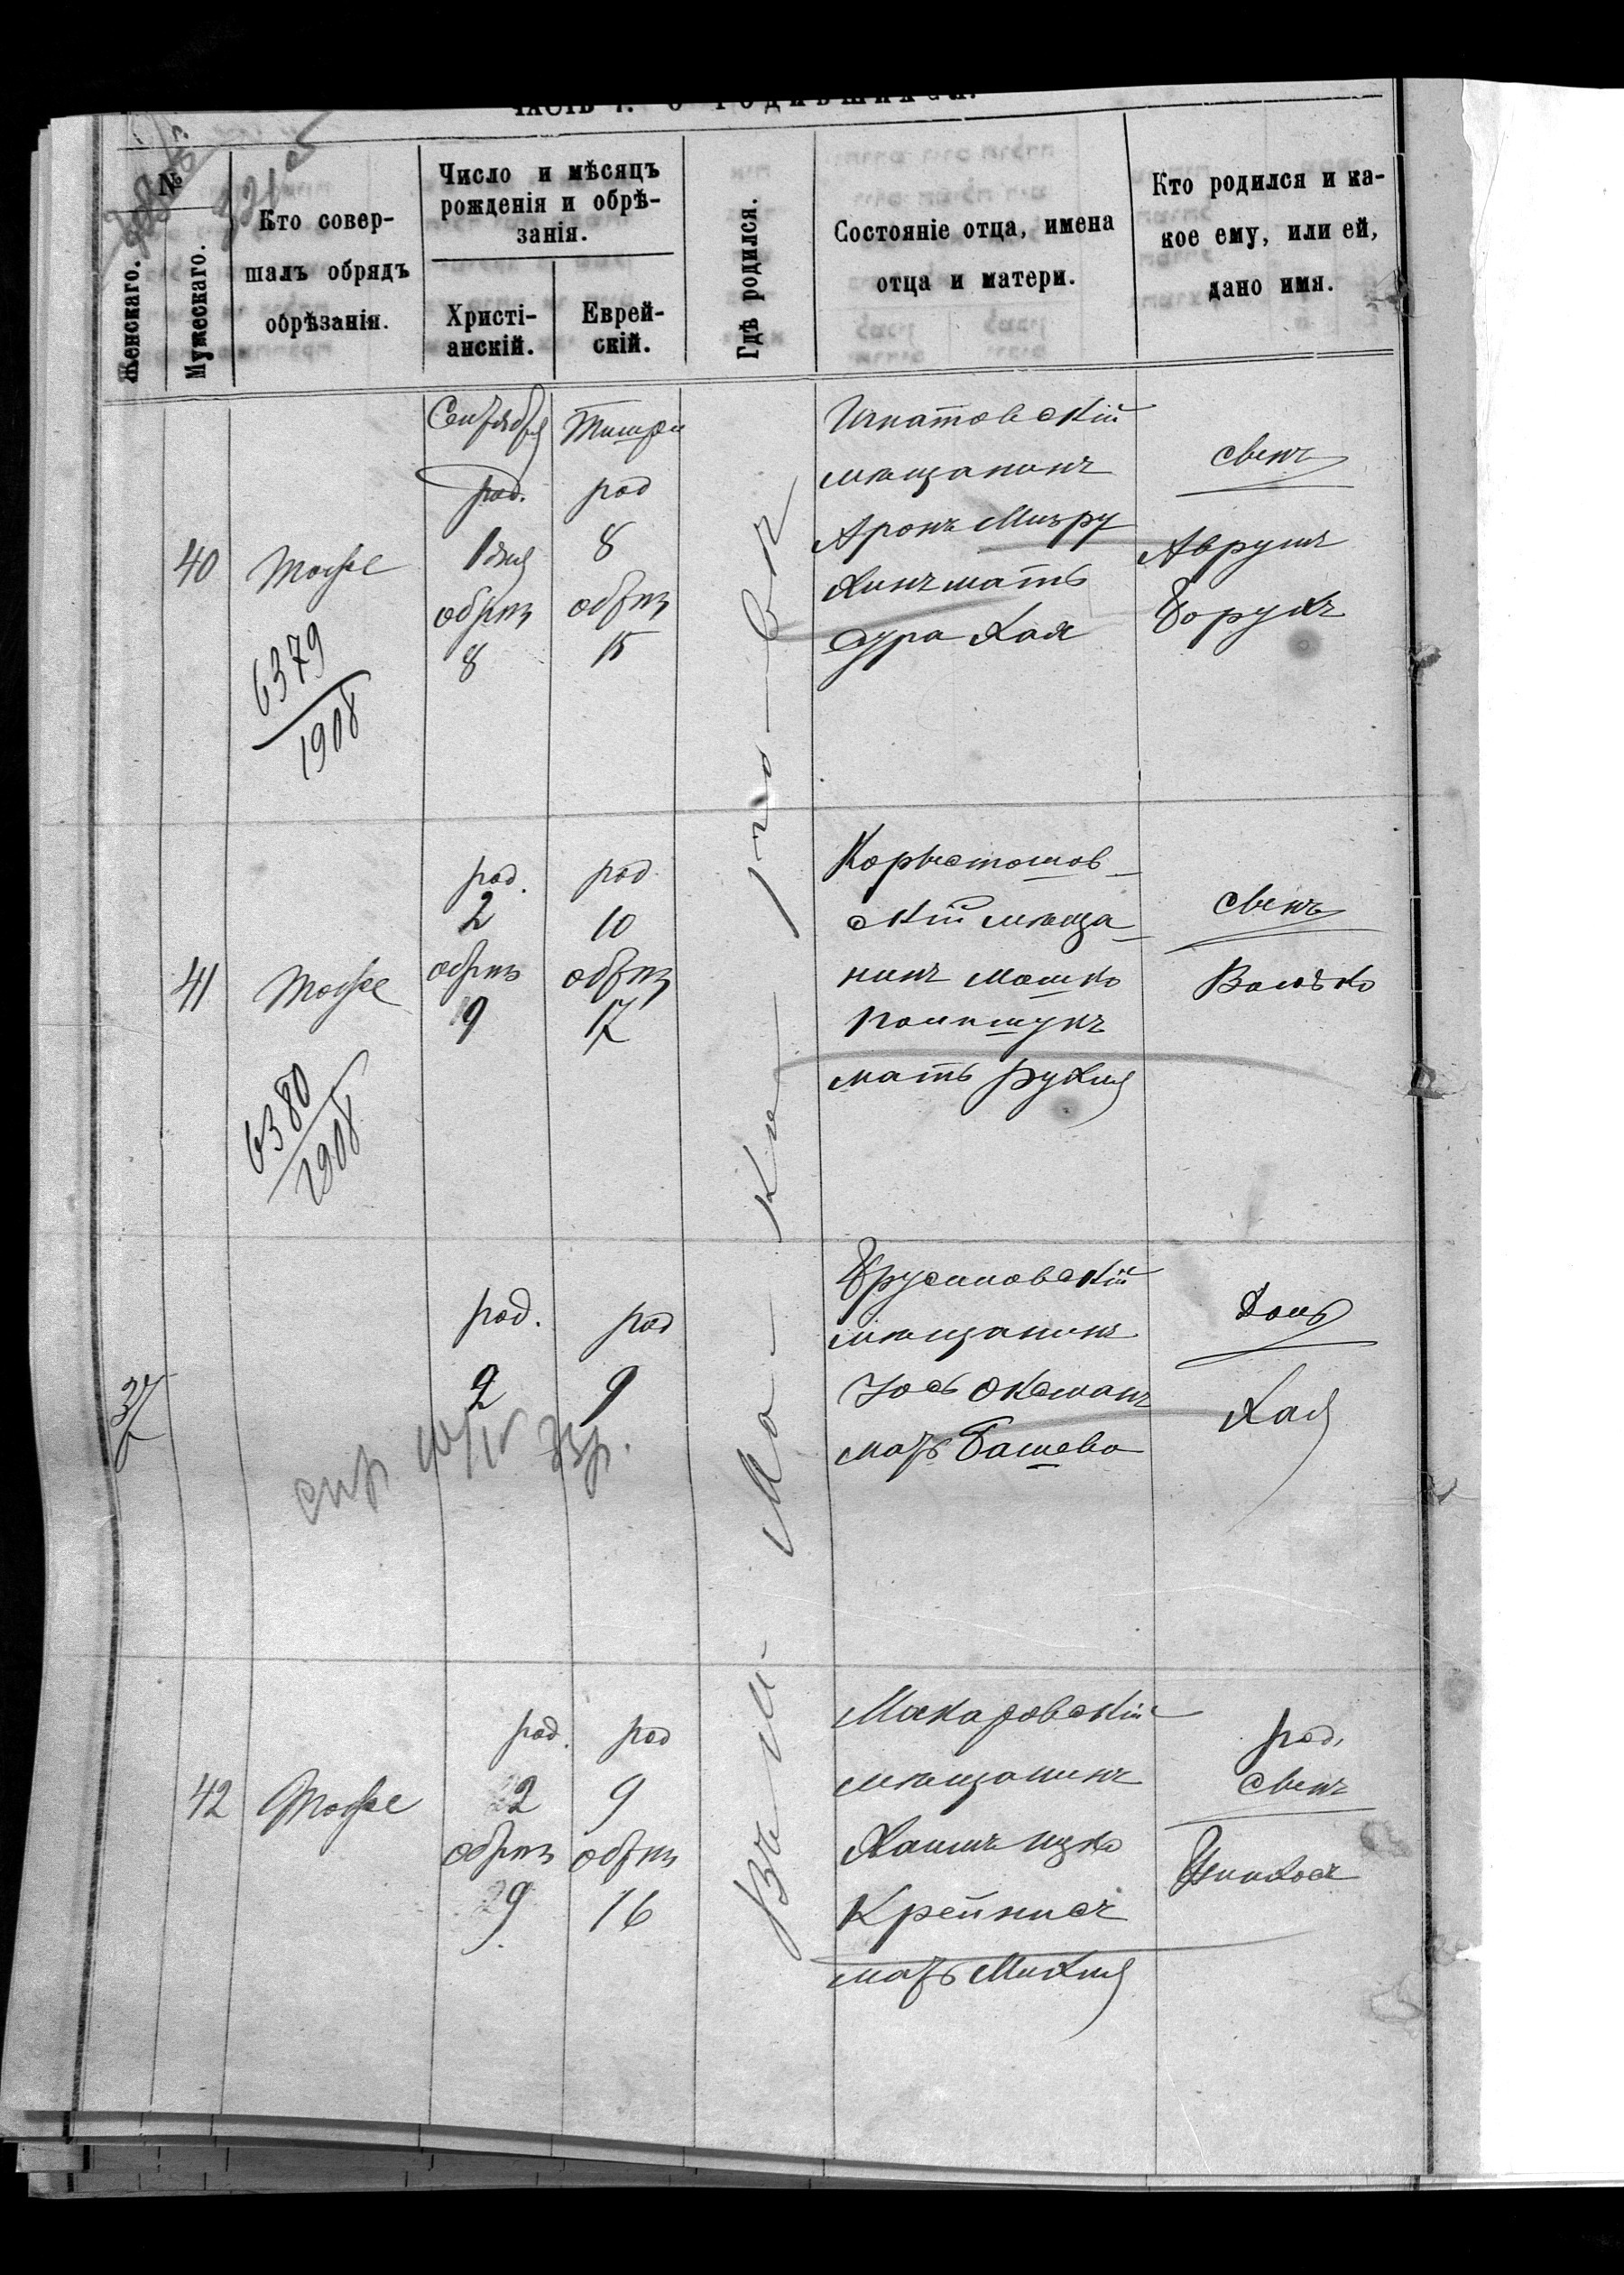 ЧАСТЬ I. О РОДИВШИХСЯ.
№
Женскаго.
Мужескаго.
Кто совер-
шалъ обрядъ
обрѣзанія.
Число и мѣсяцъ
рожденія и обрѣ-
занія.
Христі-
анскій.
Еврей-
скій.
Гдѣ родился.
Состояніе отца, имена
отца и матери.
Кто родился и ка-
кое ему, или ей,
дано имя.
40
6379
1908
Сентября
род.
1
обрѣз
8
Тишри
род
8
обрѣз
15
Игнатовскій
мѣщанинъ
Аронъ
мать
Сура Хая
сынъ
Аврумъ
Борухъ
41
6380
1908
род.
2
обрѣз
9
род
10
обрѣз
17
скій мѣща-
нинъ Мошко
Полищукъ
мать Рухля
сынъ
Волько
37
род.
2
род
9
Брусиловскій
мѣщанинъ
Іось Оксманъ
мать Башева
дочь
Хая
42
род.
22
обрѣз
29
род
9
обрѣз
16
Макаровскій
мѣщанинъ
Хаимъ Ицко
Крейнисъ
мать
род.
сынъ
Пинхосъ
Въ м. Ма-ка-ро-вѣ